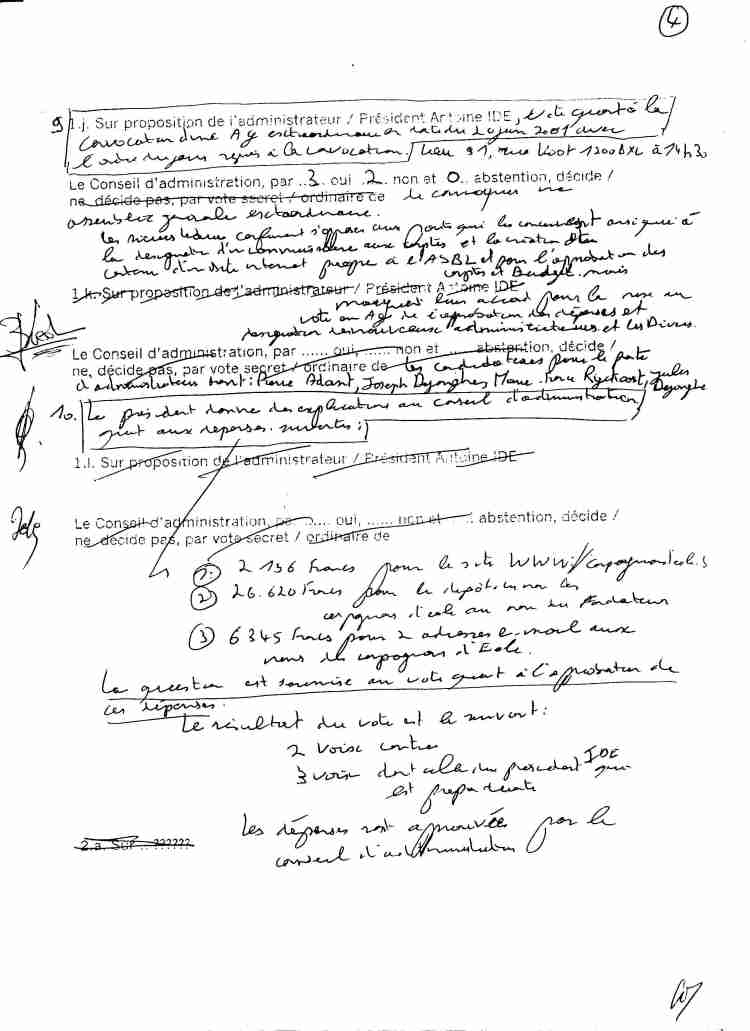 4
9 1.j. Sur proposition de l'administrateur / Président Antoine IDE, vote quant à la
convocation d'une AG extraordinaire en date du 20 juin 2001 avec
l'ordre du jour repris à la convocation / Lieu 91, rue 1200 BXL à 14h30
Le Conseil d'administration, par ..3. oui .2.. non et 0.. abstention, décide /
ne décide pas, par vote secret / ordinaire de de convoquer une
assemblée générale extraordinaire.
les confirment s'opposer aux points qui les concernent
la désignation d'un commissaire aux comptes et la création
d'un site internet propre à l'ASBL et pour l'approbation des
comptes et Budget. mais
1.k. Sur proposition de l'administrateur / Président Antoine IDE
marquent leur accord pour la mise au
vote au AG de l'approbation des dépenses et
administrateurs et les Divers.
Le Conseil d'administration, par ...... oui, ...... non et ...... abstention, décide /
ne, décide pas, par vote secret / ordinaire de les candidatures pour le poste
d'administrateur sont: Pierre Adant, Joseph Dejonghe, Marie-Rose Ryckaert, Jules
Dejonghe
10. Le président donne des explications au conseil d'administration
quant aux dépenses suivantes:
1.l. Sur proposition de l'administrateur / Président Antoine IDE
Le Conseil d'administration, par ...... oui, ...... non et ...... abstention, décide /
ne décide pas, par vote secret / ordinaire de
1. 2 196 Francs pour le site WWW
2 26.620 Francs pour le dépôt
compagnons d'école au nom du Fondateur
3 6345 Francs pour 2 adresses e-mail aux
noms des compagnons d'Ecole.
La question est soumise au vote quant à l'approbation de
ces dépenses.
Le résultat du vote est le suivant:
2 voix contre
3 voix dont celle du président IDE qui
est prépondérante
Les dépenses sont approuvées par le
conseil d'administration
2.a. Sur .. ??????